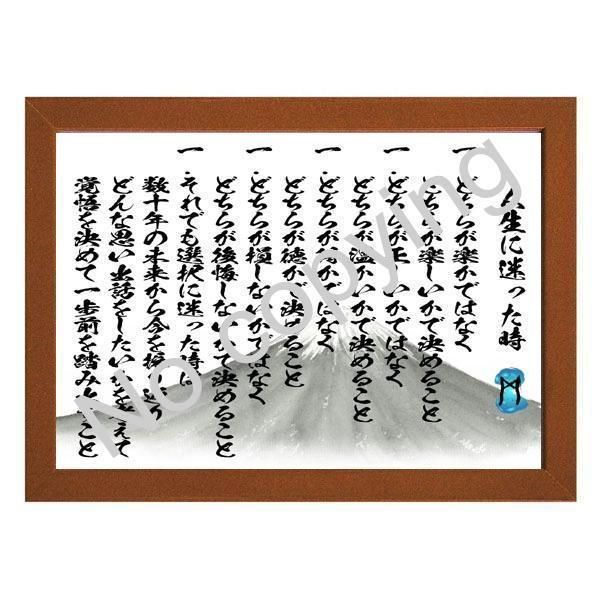 人生に迷った時
一、どちらが楽かではなく
どちらが楽しいかで決めること
一、どちらが正しいかではなく
どちらが温かいかで決めること
一、どちらが かではなく
どちらが徳かで決めること
一、どちらが損しないかではなく
どちらが後悔しないかで決めること
一、それでも選択に迷った時は
数十年の未来から今を振り返り
どんな思い出話をしたいかを考えて
覚悟を決めて一歩前を踏み出すこと
No copying